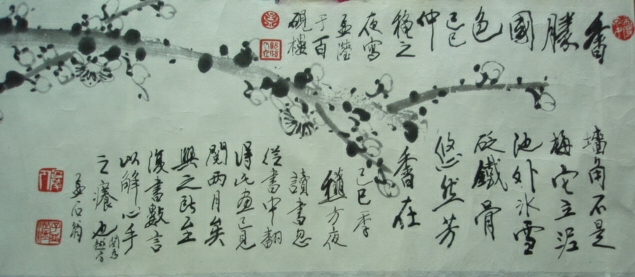 香
勝
國
色
己巳
仲
穐之
夜寫
孟陸
于百
硯樓
墻角不是
梅它立泥
池外冰雪
砭鐵骨
悠然芳
香在
己巳季
穐方夜
讀書忽
從書中翻
得此畫已見
閱兩月矣
興之所至
復書數言
以解心手
之癢也
孟石翁